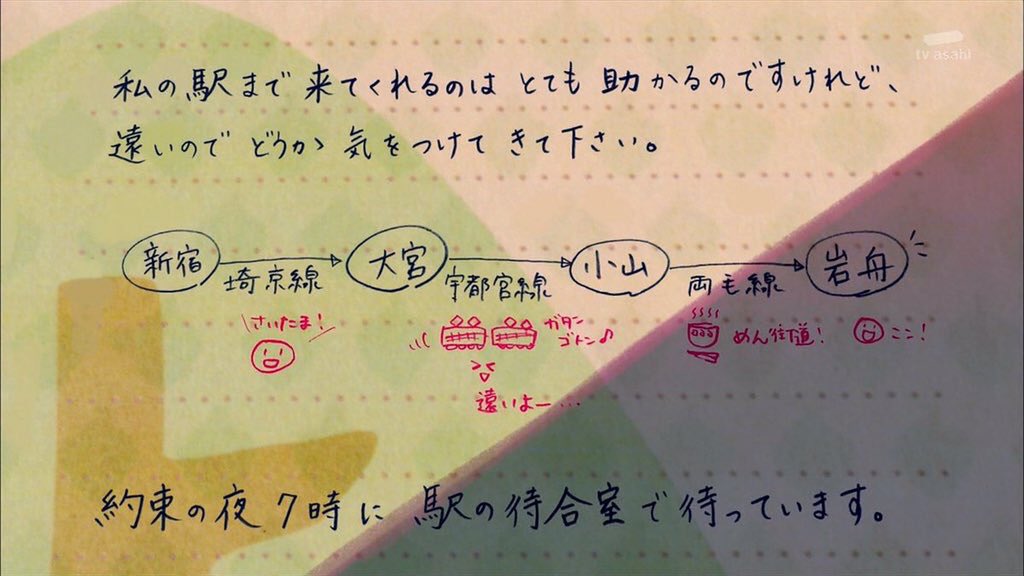 tv asahi
私の駅まで来てくれるのはとても助かるのですけれど、
遠いのでどうか気をつけてきて下さい。
新宿 埼京線 大宮 宇都宮線 小山 両毛線 岩舟
さいたま! ガタン ゴトン♪ めん街道! ここ!
遠いよー…
約束の夜7時に駅の待合室で待っています。